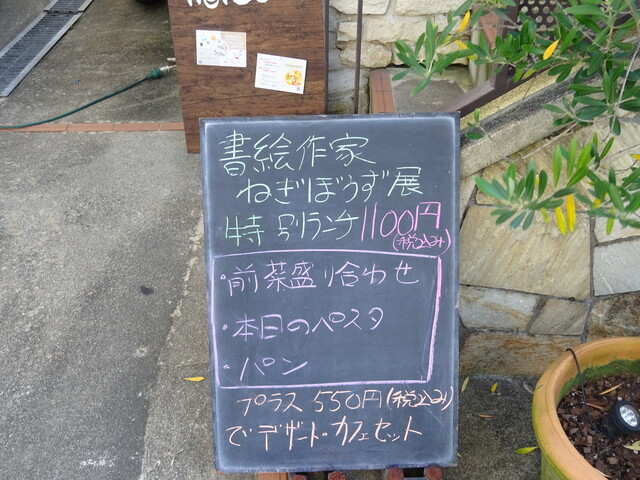 書絵作家
ねぎぼうず展
特別ランチ 1100円
(税込み)
・前菜盛り合わせ
・本日のパスタ
・パン
プラス 550円(税込み)
でデザート・カフェセット